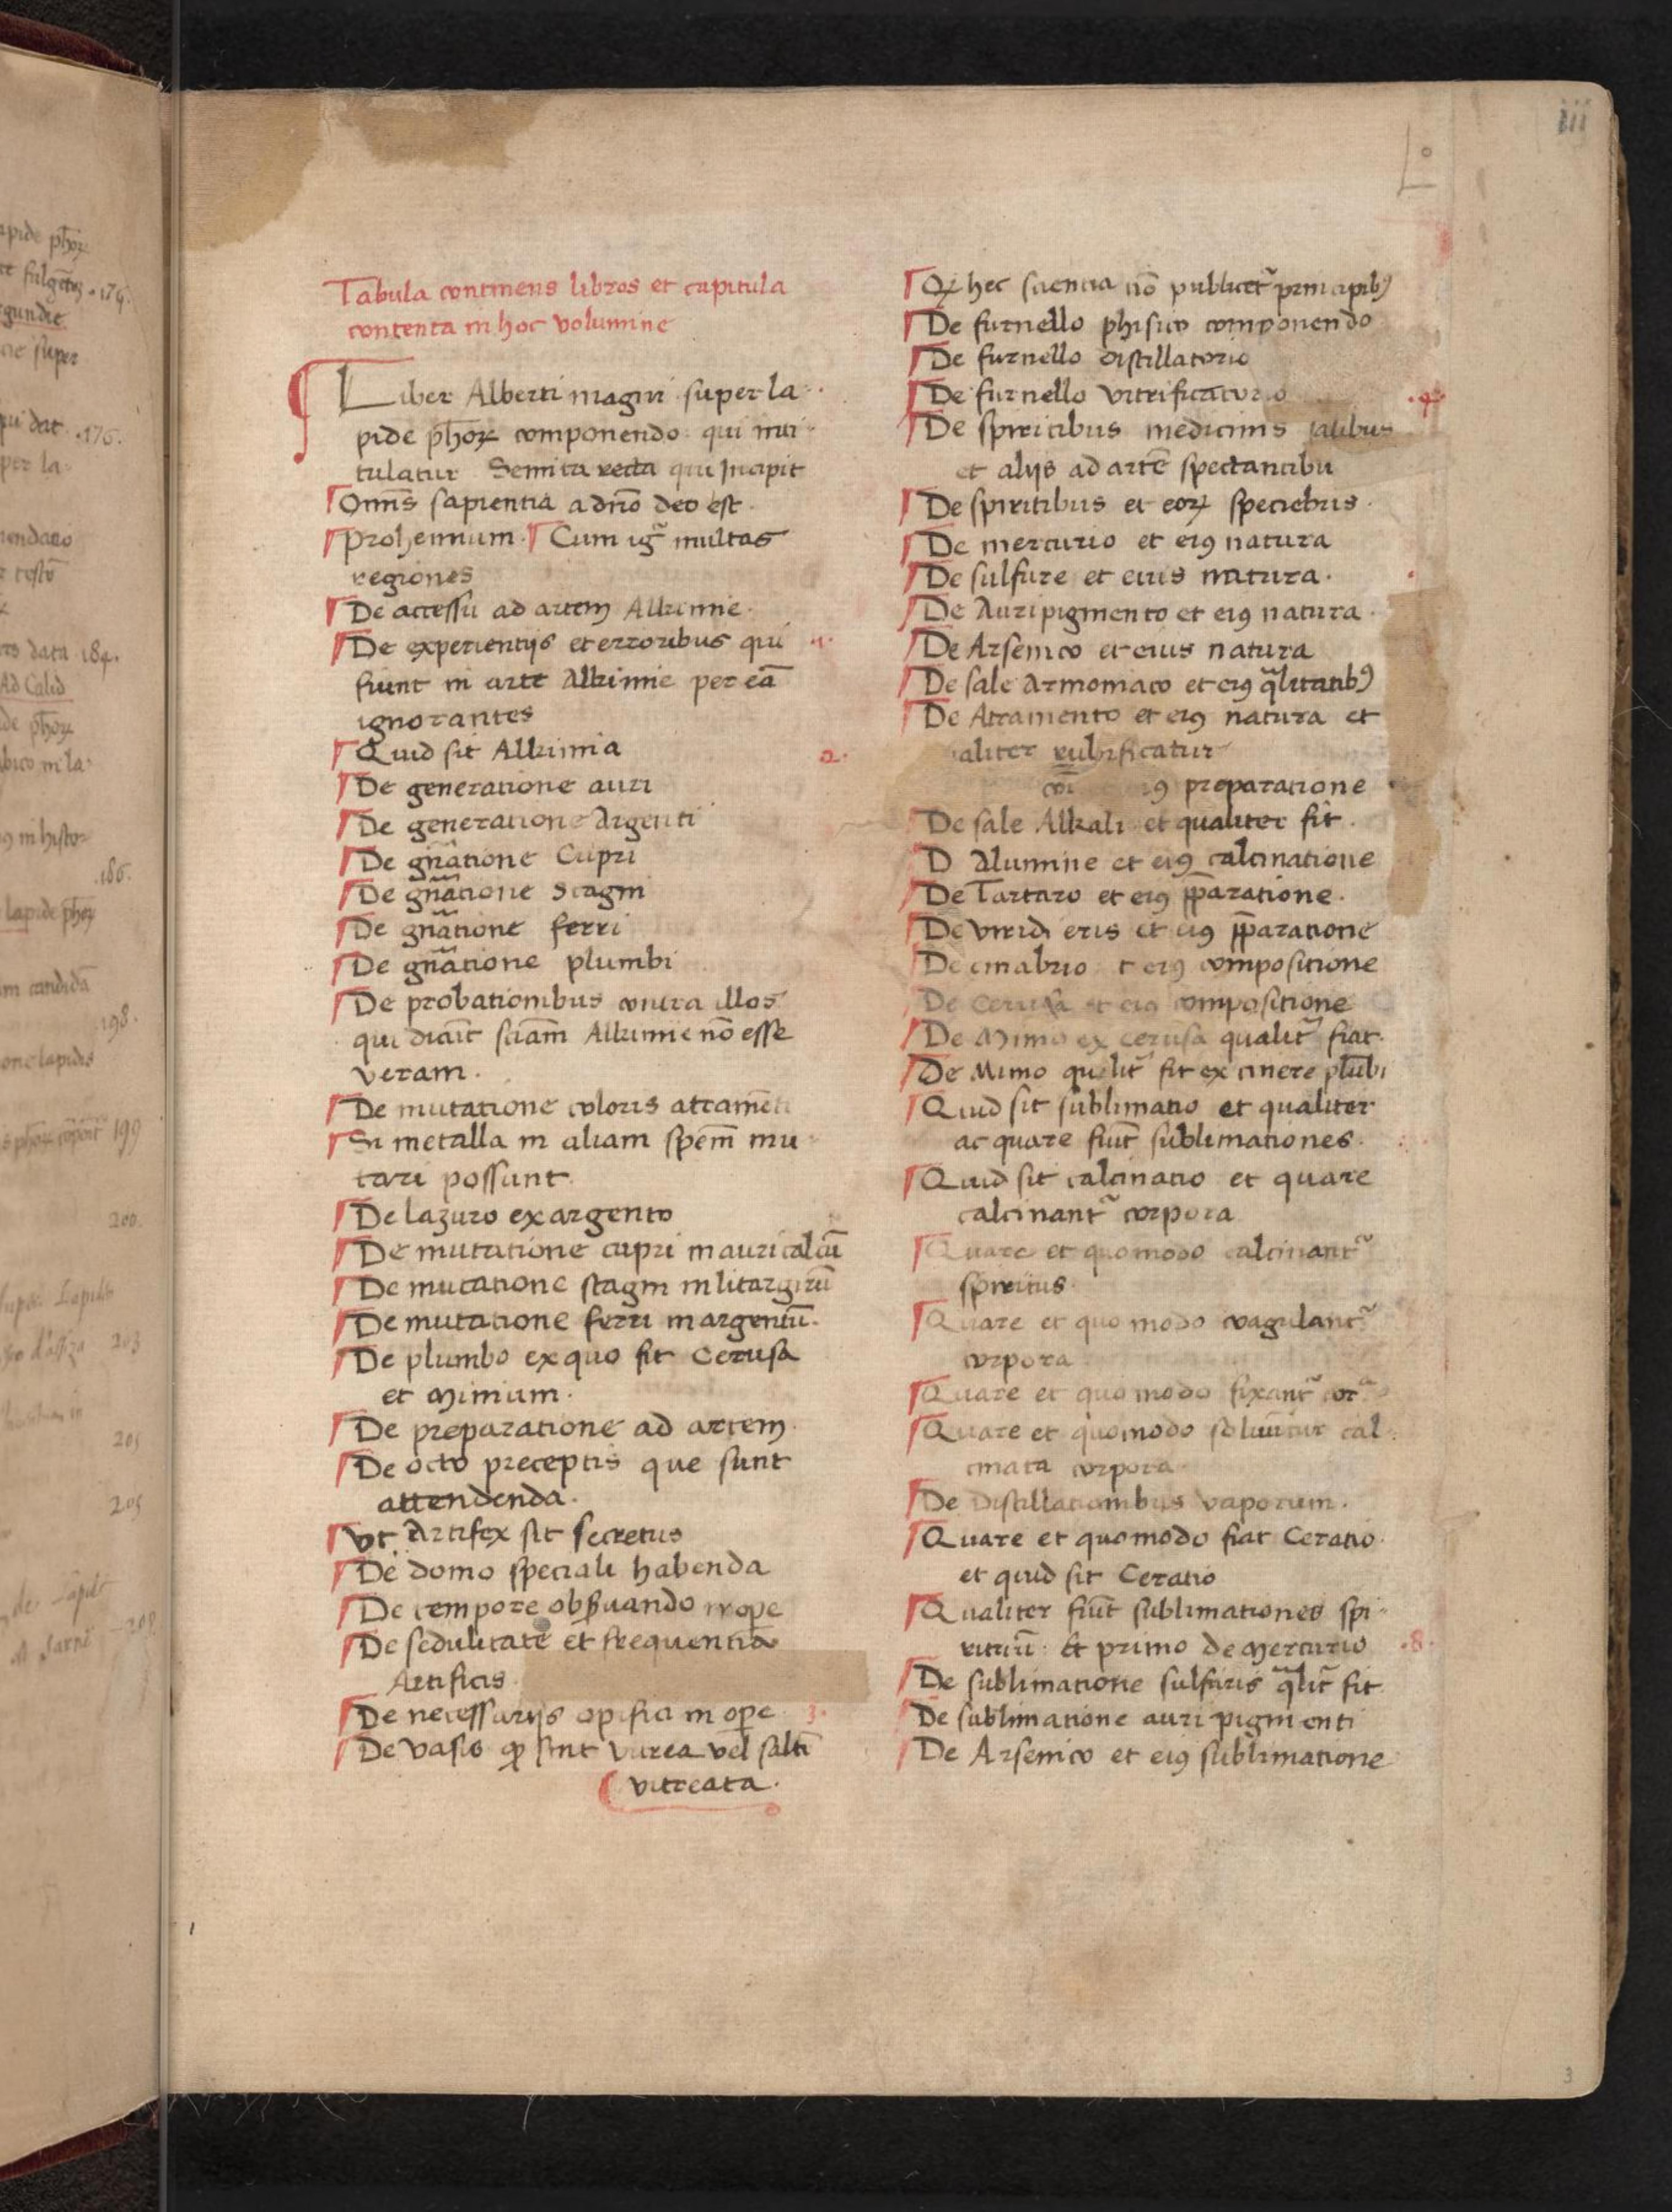 iij
Tabula continens libros et capitula
contenta in hoc volumine
Liber Alberti magni super la
pide ph̄oꝝ componendo qui inti
tulatur Semita recta qui Incipit
Om̄s sapientia a dn̄o deo est.
Prohemium. Cum ig̃ multas
regiones
De accessu ad artem Alkimie.
De experientijs et erroribus qui .1.
fiunt in arte Alkimie per eā
ignorantes
Quid sit Alkimia 2.
De generatione auri
De generatione Argenti
De gn̄atione Cupri
De gn̄atione Stagni
De gn̄atione ferri
De gn̄atione plumbi
De probationibus contra illos
qui dicūt sciam̄ Alkimie nō esse
veram.
De mutatione coloris atramēti
Si metalla in aliam spem̄ mu
tari possunt.
De lazuro ex argento
De mutatione cupri in auricalcū
De mutatione stagni in litargirū
De mutatione ferri in argentū.
De plumbo ex quo fit Cerusa
et Minium.
De preparatione ad artem.
De octo preceptis que sunt
attendenda.
Vt Artifex sit secretus
De domo speciali habenda
De tempore obẜuando in oꝑe
De sedulitate et frequentia
Artificis
De necessarijs opifici in oꝑe 3.
De vasis ꝙ sint vitrea vel saltī
vitreata.
Qꝫ hec sciencia nō publicet᷑ principibꝰ
De furnello phisico componendo
De furnello distillatorio
De furnello vitrificatorio .4.
De spiritibus medicinis salibus
et alijs ad artē spectantibu
De spiritibus et eoꝝ speciebus.
De mercurio et eiꝰ natura
De sulfure et eius natura.
De Auripigmento et eiꝰ natura.
De Arsenico et eius natura
De sale Armoniaco et eiꝰ q̃litatibꝰ
De Atramento et eiꝰ natura et
aliter rubificatur
preparatione
De sale Alkali et qualiter fit.
D Alumine et eiꝰ calcinatione
De Tartaro et eiꝰ pp̄aratione.
De viridi eris et eiꝰ pp̄aratione
De cinabrio t eiꝰ compositione
De Cerusa et eiꝰ compositione
De Minio ex cerusa qualit᷑ fiat.
De Minio qualit᷑ fit ex cinere plūbi
Quid sit sublimatio et qualiter
ac quare fiūt sublimationes.
Quid sit calcinatio et quare
calcinant᷑ corpora
Quare et quomodo calcinant᷑
spiritus.
Quare et quo modo coagulant᷑
corpora
Quare et quo modo fixant᷑ cor᷑
Quare et quomodo soluūtur cal
cinata corpora
De Distillationibus vaporum.
Quare et quomodo fiat Ceratio.
et quid sit Ceratio
Qualiter fiūt sublimationes spi
rituū. Et primo de Mercurio .8.
De sublimatione sulfuris q̃lit᷑ fit
De sublimatione auri pigmenti
De Arsenico et eiꝰ sublimatione
3